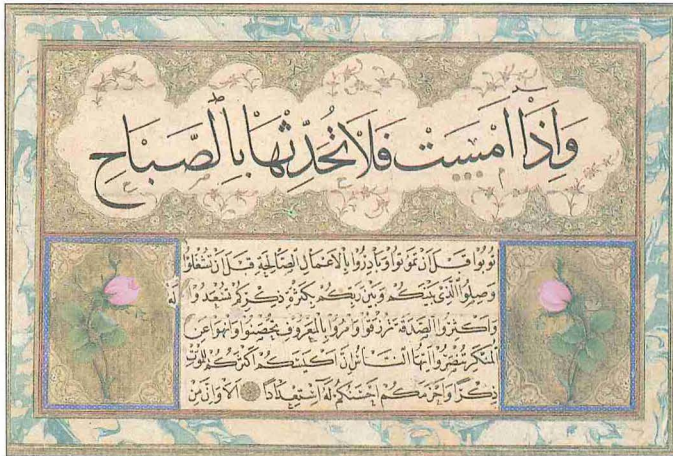 وَاِذَا اَمْسَيْتَ فَلَا تُحَدِّثْهَا بِالصَّبَاحِ
تُوبُوا قَبْلَ اَنْ تَمُوتُوا وَبَادِرُوا بِالْاَعْمَالِ الصَّالِحَةِ قَبْلَ اَنْ تُشْغَلُوا
وَصِلُوا الَّذِى بَيْنَكُمْ وَبَيْنَ رَبِّكُمْ بِكَثْرَةِ ذِكْرِكُمْ تَسْعَدُوا لَهُ
وَاَكْثِرُوا الصَّدَقَةَ تُرْزَقُوا وَأْمُرُوا بِالْمَعْرُوفِ تُخْصِبُوا وَانْهَوْا عَنِ
الْمُنْكَرِ تُنْصَرُوا اَيُّهَا النَّاسُ اِنَّ اَكْيَسَكُمْ اَكْثَرُكُمْ لِلْمَوْتِ
ذِكْرًا وَاَحْزَمَكُمْ اَحْسَنُكُمْ لَهُ اسْتِعْدَادًا اَلَا وَاِنَّ مِنْ